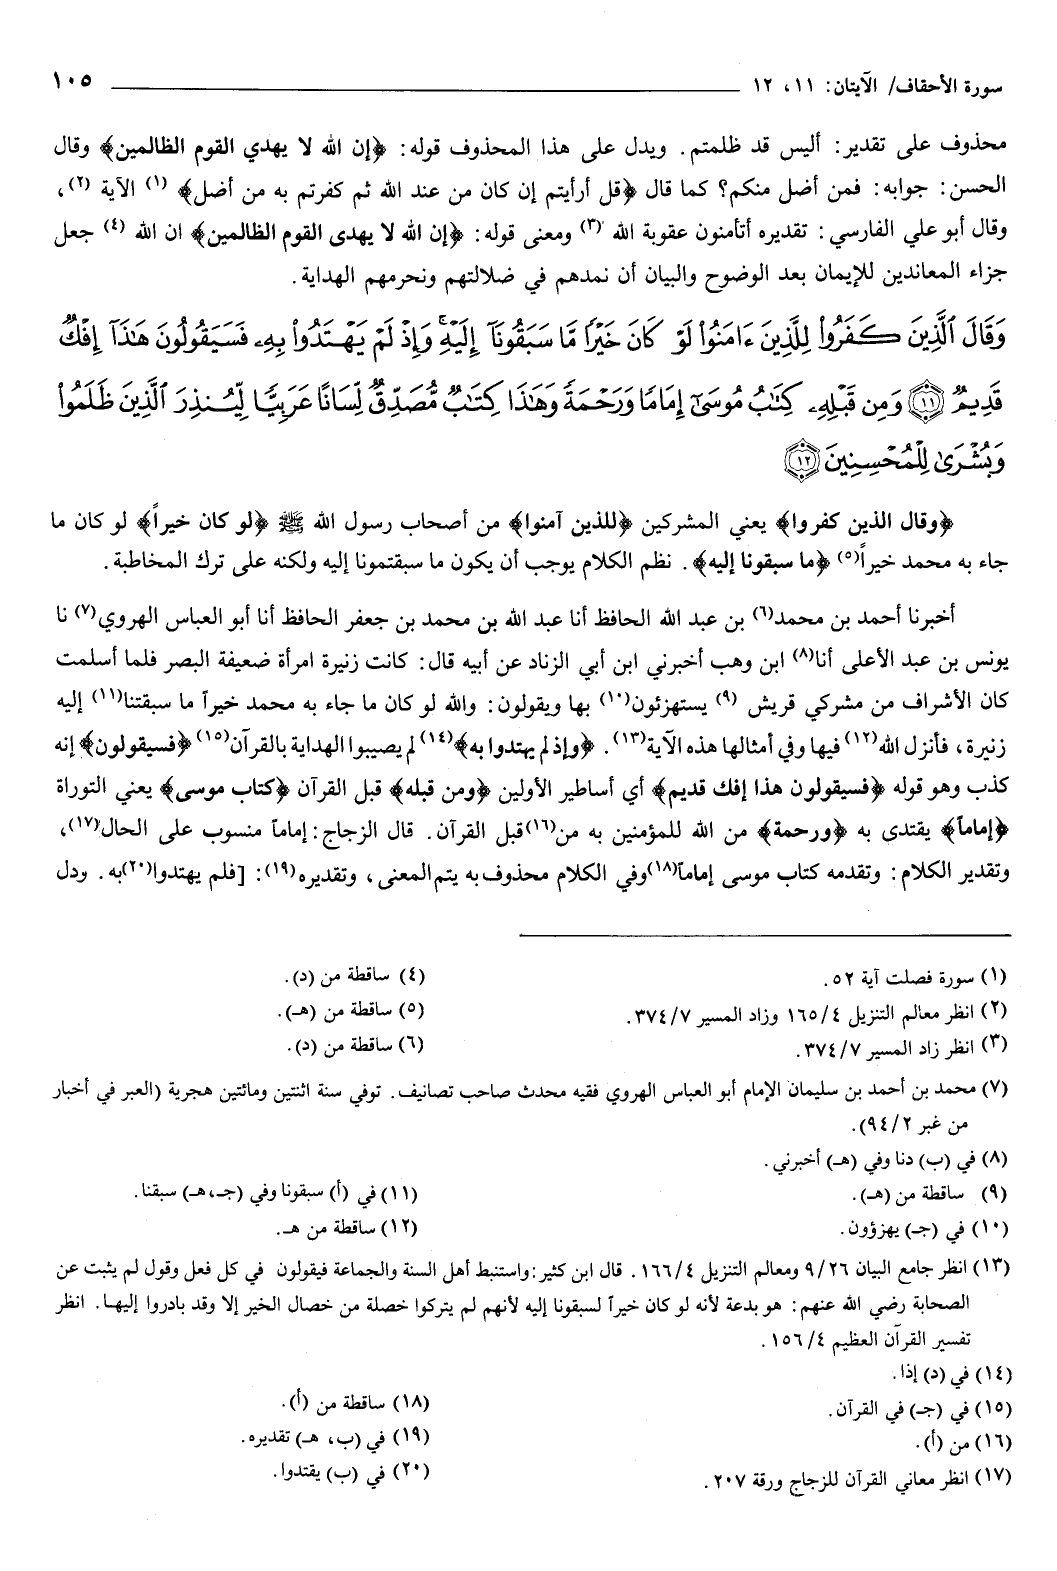 سورة الأحقاف/ الآيتان: ١١، ١٢ ١٠٥
محذوف على تقدير: أليس قد ظلمتم. ويدل على هذا المحذوف قوله: ﴿إن الله لا يهدي القوم الظالمين﴾ وقال
الحسن: جوابه: فمن أضل منكم؟ كما قال ﴿قل أرأيتم إن كان من عند الله ثم كفرتم به من أضل﴾ (١) الآية (٢)،
وقال أبو علي الفارسي: تقديره أتأمنون عقوبة الله (٣) ومعنى قوله: ﴿إن الله لا يهدى القوم الظالمين﴾ ان الله (٤) جعل
جزاء المعاندين للإيمان بعد الوضوح والبيان أن نمدهم في ضلالتهم ونحرمهم الهداية.
وَقَالَ ٱلَّذِينَ كَفَرُواْ لِلَّذِينَ ءَامَنُواْ لَوْ كَانَ خَيْرًا مَّا سَبَقُونَآ إِلَيْهِ ۚ وَإِذْ لَمْ يَهْتَدُواْ بِهِۦ فَسَيَقُولُونَ هَٰذَآ إِفْكٌ
قَدِيمٌ ﴿١١﴾ وَمِن قَبْلِهِۦ كِتَٰبُ مُوسَىٰٓ إِمَامًا وَرَحْمَةً ۚ وَهَٰذَا كِتَٰبٌ مُّصَدِّقٌ لِّسَانًا عَرَبِيًّا لِّيُنذِرَ ٱلَّذِينَ ظَلَمُواْ
وَبُشْرَىٰ لِلْمُحْسِنِينَ ﴿١٢﴾
﴿وقال الذين كفروا﴾ يعني المشركين ﴿للذين آمنوا﴾ من أصحاب رسول الله ﷺ ﴿لو كان خيراً﴾ لو كان ما
جاء به محمد خيراً(٥) ﴿ما سبقونا إليه﴾. نظم الكلام يوجب أن يكون ما سبقتمونا إليه ولكنه على ترك المخاطبة.
أخبرنا أحمد بن محمد(٦) بن عبد الله الحافظ أنا عبد الله بن محمد بن جعفر الحافظ أنا أبو العباس الهروي(٧) نا
يونس بن عبد الأعلى أنا(٨) ابن وهب أخبرني ابن أبي الزناد عن أبيه قال: كانت زنيرة امرأة ضعيفة البصر فلما أسلمت
كان الأشراف من مشركي قريش (٩) يستهزئون(١٠) بها ويقولون: والله لو كان ما جاء به محمد خيراً ما سبقتنا(١١) إليه
زنيرة، فأنزل الله(١٢) فيها وفي أمثالها هذه الآية(١٣). ﴿وإذ لم يهتدوا به﴾(١٤) لم يصيبوا الهداية بالقرآن(١٥) ﴿فسيقولون﴾ إنه
كذب وهو قوله ﴿فسيقولون هذا إفك قديم﴾ أي أساطير الأولين ﴿ومن قبله﴾ قبل القرآن ﴿كتاب موسى﴾ يعني التوراة
﴿إماماً﴾ يقتدى به ﴿ورحمة﴾ من الله للمؤمنين به من(١٦)قبل القرآن. قال الزجاج: إماماً منسوب على الحال(١٧)،
وتقدير الكلام: وتقدمه كتاب موسى إماماً(١٨)وفي الكلام محذوف به يتم المعنى، وتقديره(١٩): [فلم يهتدوا(٢٠)به. ودل
(١) سورة فصلت آية ٥٢. (٤) ساقطة من (د).
(٢) انظر معالم التنزيل ٤/ ١٦٥ وزاد المسير ٧/ ٣٧٤. (٥) ساقطة من (هـ).
(٣) انظر زاد المسير ٧/ ٣٧٤. (٦) ساقطة من (د).
(٧) محمد بن أحمد بن سليمان الإمام أبو العباس الهروي فقيه محدث صاحب تصانيف. توفي سنة اثنتين ومائتين هجرية (العبر في أخبار
من غبر ٢/ ٩٤).
(٨) في (ب) دنا وفي (هـ) أخبرني.
(٩) ساقطة من (هـ). (١١) في (أ) سبقونا وفي (جـ، هـ) سبقنا.
(١٠) في (جـ) يهزؤون. (١٢) ساقطة من هـ.
(١٣) انظر جامع البيان ٢٦/ ٩ ومعالم التنزيل ٤/ ١٦٦. قال ابن كثير: واستنبط أهل السنة والجماعة فيقولون في كل فعل وقول لم يثبت عن
الصحابة رضي الله عنهم: هو بدعة لأنه لو كان خيراً لسبقونا إليه لأنهم لم يتركوا خصلة من خصال الخير إلا وقد بادروا إليها. انظر
تفسير القرآن العظيم ٤/ ١٥٦.
(١٤) في (د) إذا.
(١٥) في (جـ) في القرآن. (١٨) ساقطة من (أ).
(١٦) من (أ). (١٩) في (ب، هـ) تقديره.
(١٧) انظر معاني القرآن للزجاج ورقة ٢٠٧. (٢٠) في (ب) يقتدوا.